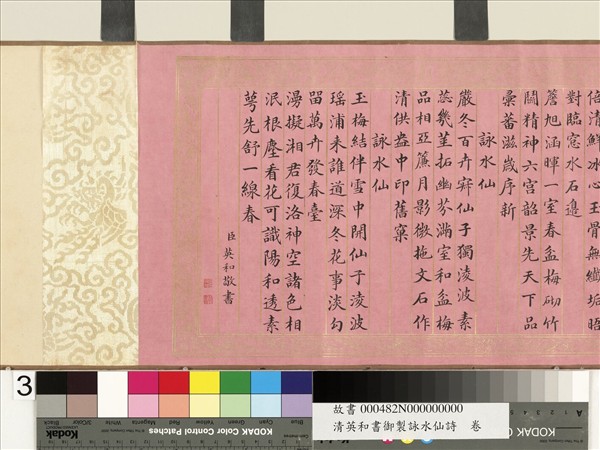 倍清鮮冰心玉骨無纖垢晤
對臨窓水石邊
簷旭涵暉一室春盆梅砌竹
鬭精神六宫韶景先天下品
彙蕃滋歲序新
詠水仙
嚴冬百卉寂仙子獨淩波素
蕊幾莖拓幽芬滿室和盆梅
品相亞簾月影微拖文石作
清供盎中印舊窠
詠水仙
玉梅結伴雪中開仙子淩波
瑶浦来誰道深冬花事淡勾
留萬卉發春臺
漫擬湘君復洛神空諸色相
泯根塵看花可識陽和透素
萼先舒一線春
臣英和敬書
3
Black
White
Magenta
Red
Yellow
Green
Cyan
Blue
Kodak
KODAK Color Control Patches
故書 000482N000000000
清英和書御製詠水仙詩 卷
A
Kodak